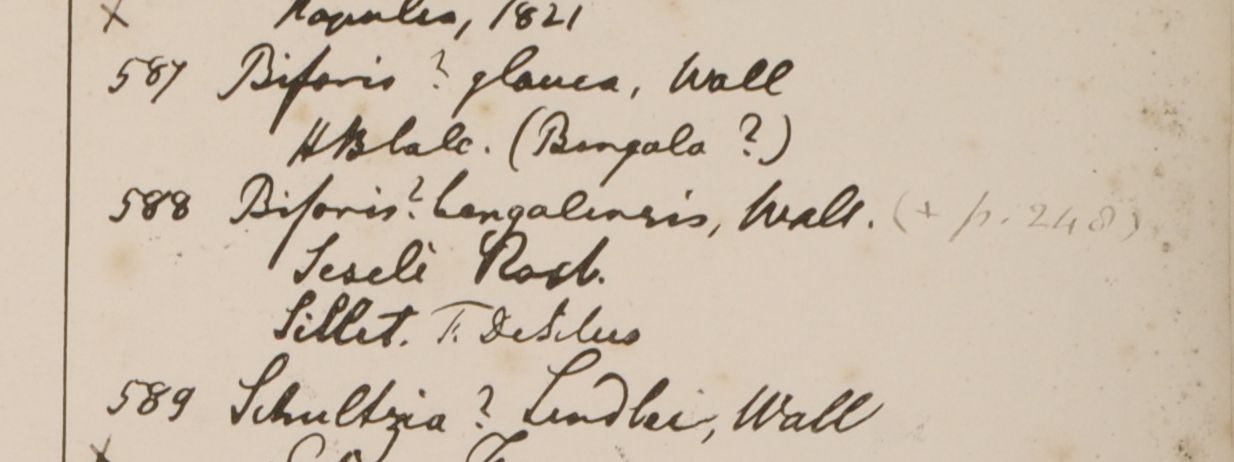 × Napalia, 1821
587 Biforis ? glauca, Wall
HBlalc. (Bengala ?)
588 Biforis? bengalensis, Wall. (+ p. 248)
Seseli Roxb.
Sillet. F. DeSilva
589 Schultzia ? Lindlei, Wall
×